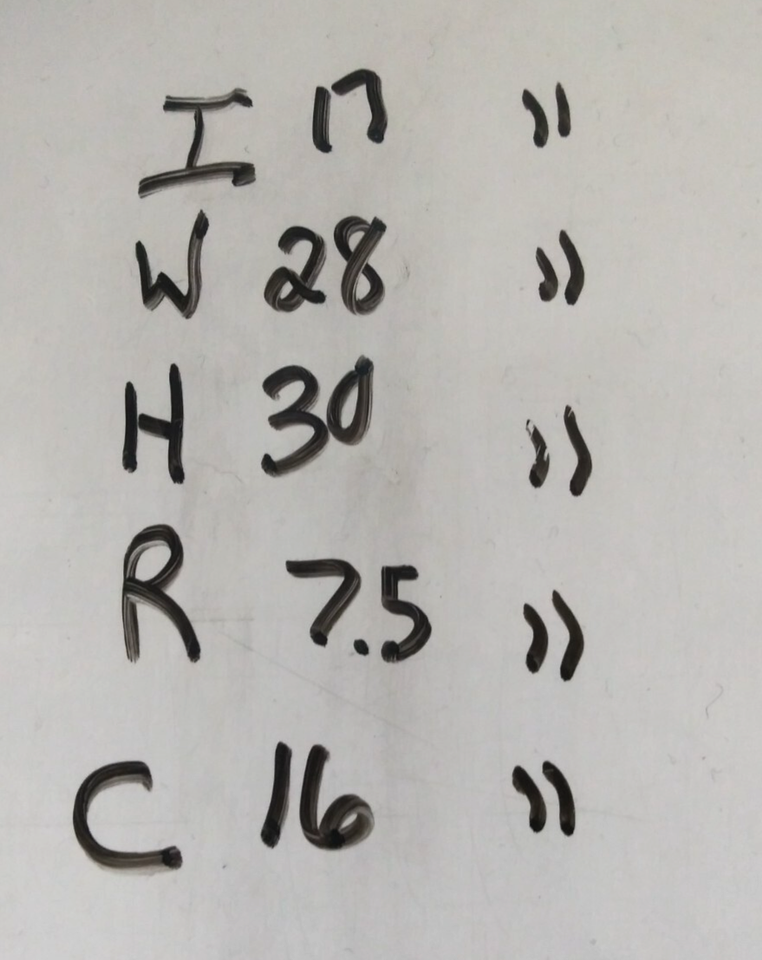 I 17 "
W 28 "
H 30 "
R 7.5 "
C 16 "